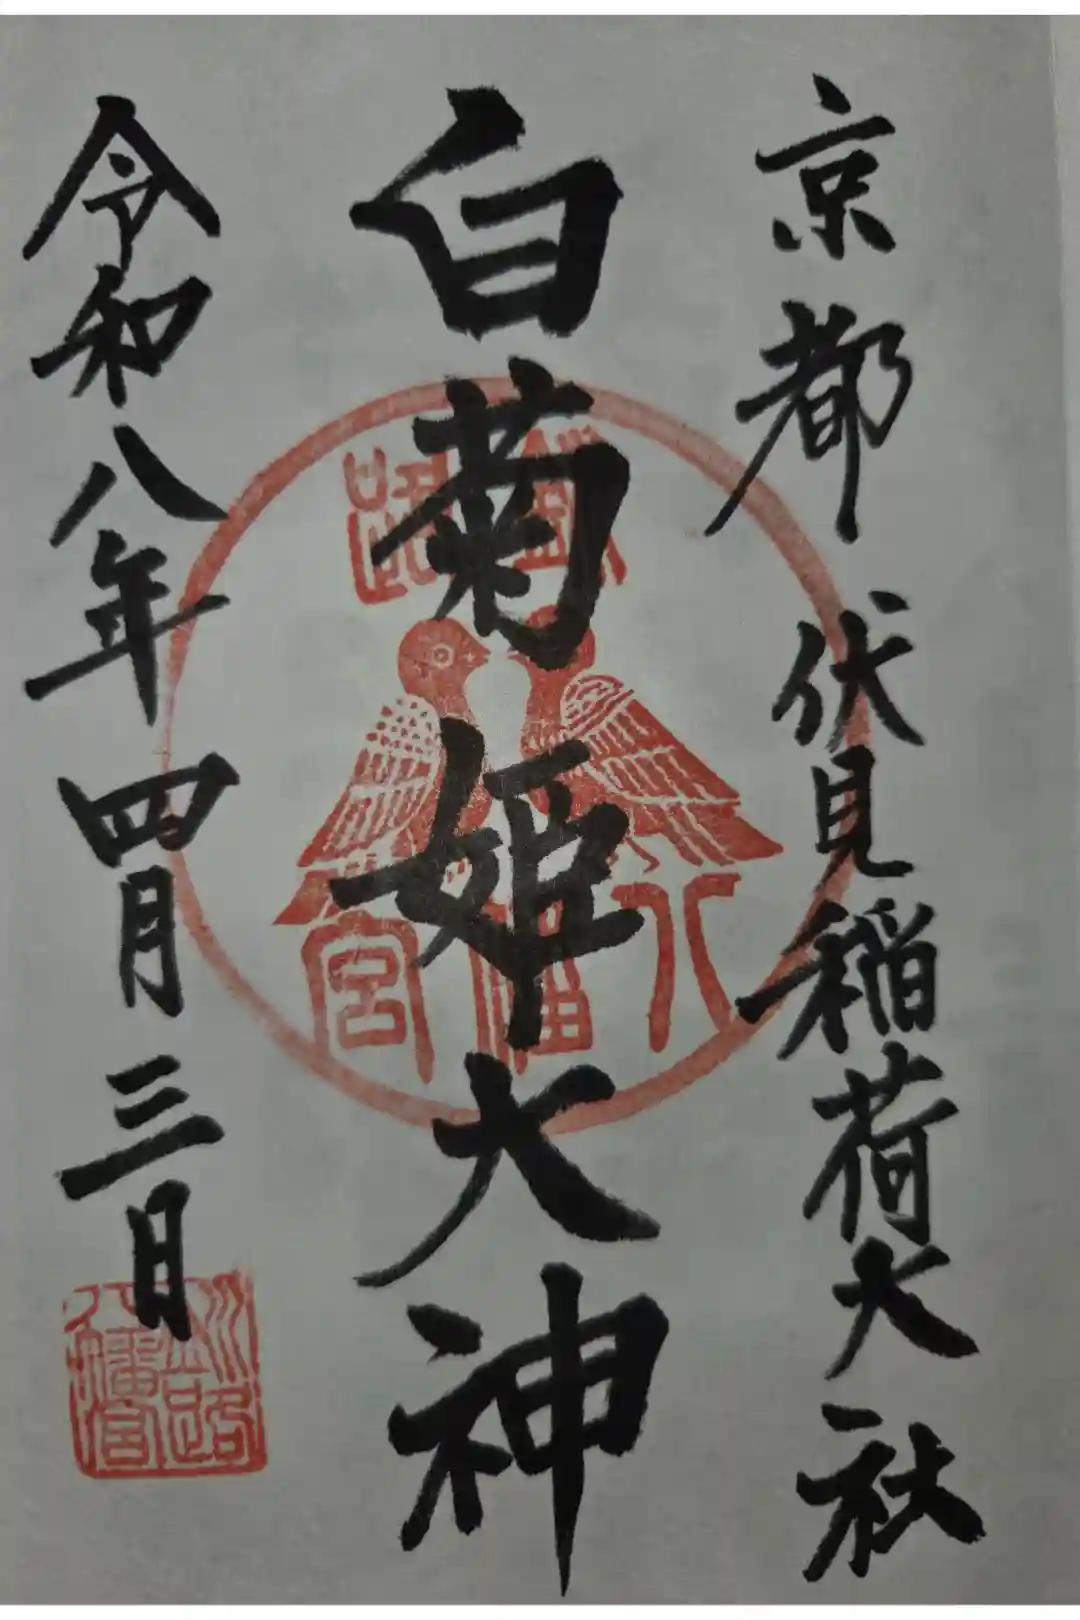 京都 伏見稲荷大社
白菊姫大神
釧路
八幡宮
令和八年四月三日
釧路
八幡宮